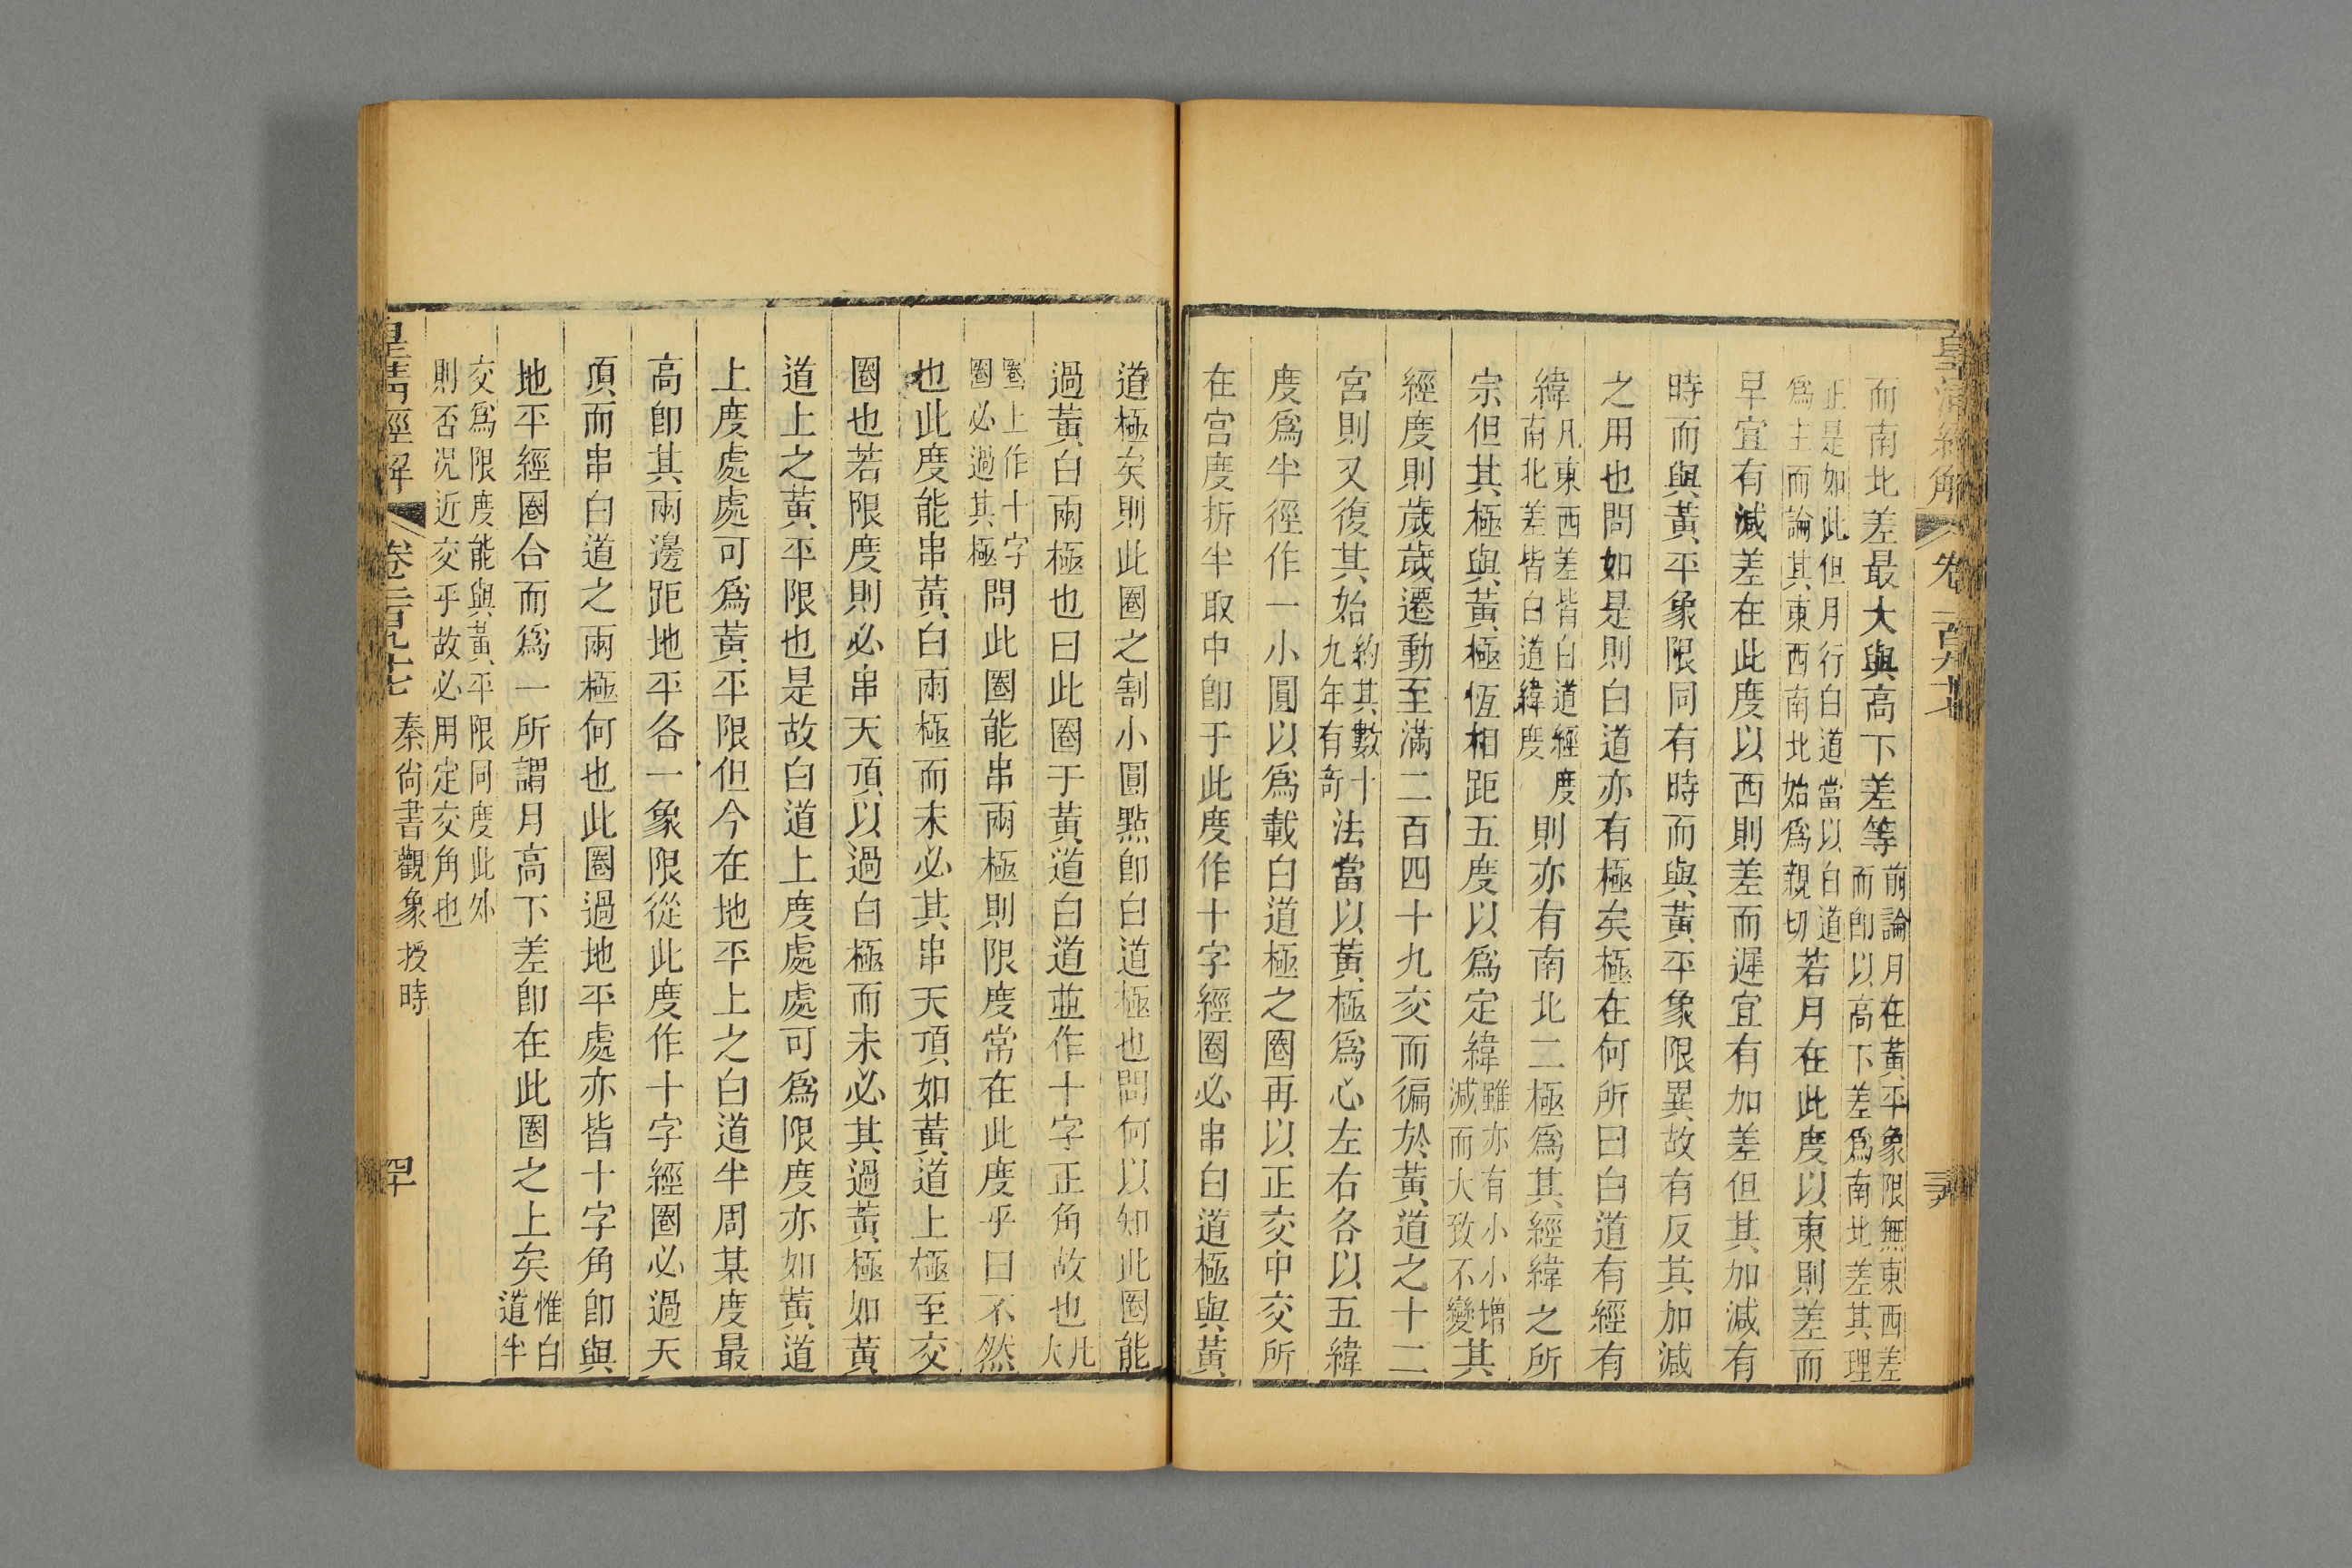 皇清經解 卷二百九十七
而南北差最大與高下差等前論月在黃平象限無東西差而卽以高下差爲南北差其理
正是如此但月行白道當以白道爲主而論其東西南北始爲親切若月在此度以東則差而
早宜有減差在此度以西則差而遲宜有加差但其加減有
時而與黃平象限同有時而與黃平象限異故有反其加減
之用也問如是則白道亦有極矣極在何所曰白道有經有
緯凡東西差皆白道經度南北差皆白道緯度則亦有南北二極爲其經緯之所
宗但其極與黃極恆相距五度以爲定緯雖亦有小小增減而大致不變其
經度則歲歲遷動至滿二百四十九交而徧於黃道之十二
宮則又復其始約其數十九年有奇法當以黃極爲心左右各以五緯
度爲半徑作一小圓以爲載白道極之圈再以正交中交所
在宮度折半取中卽于此度作十字經圈必串白道極與黃
道極矣則此圈之割小圓點卽白道極也問何以知此圈能
過黃白兩極也曰此圈于黃道白道並作十字正角故也凡大
圈上作十字圈必過其極問此圈能串兩極則限度常在此度乎曰不然
也此度能串黃白兩極而未必其串天頂如黃道上極至交
圈也若限度則必串天頂以過白極而未必其過黃極如黃
道上之黃平限也是故白道上度處處可爲限度亦如黃道
上度處處可爲黃平限但今在地平上之白道半周某度最
高卽其兩邊距地平各一象限從此度作十字經圈必過天
頂而串白道之兩極何也此圈過地平處亦皆十字角卽與
地平經圈合而爲一所謂月高下差卽在此圈之上矣惟白道半
交爲限度能與黃平限同度此外則否況近交乎故必用定交角也
皇清經解 卷二百九十七 秦尚書觀象授時 四十